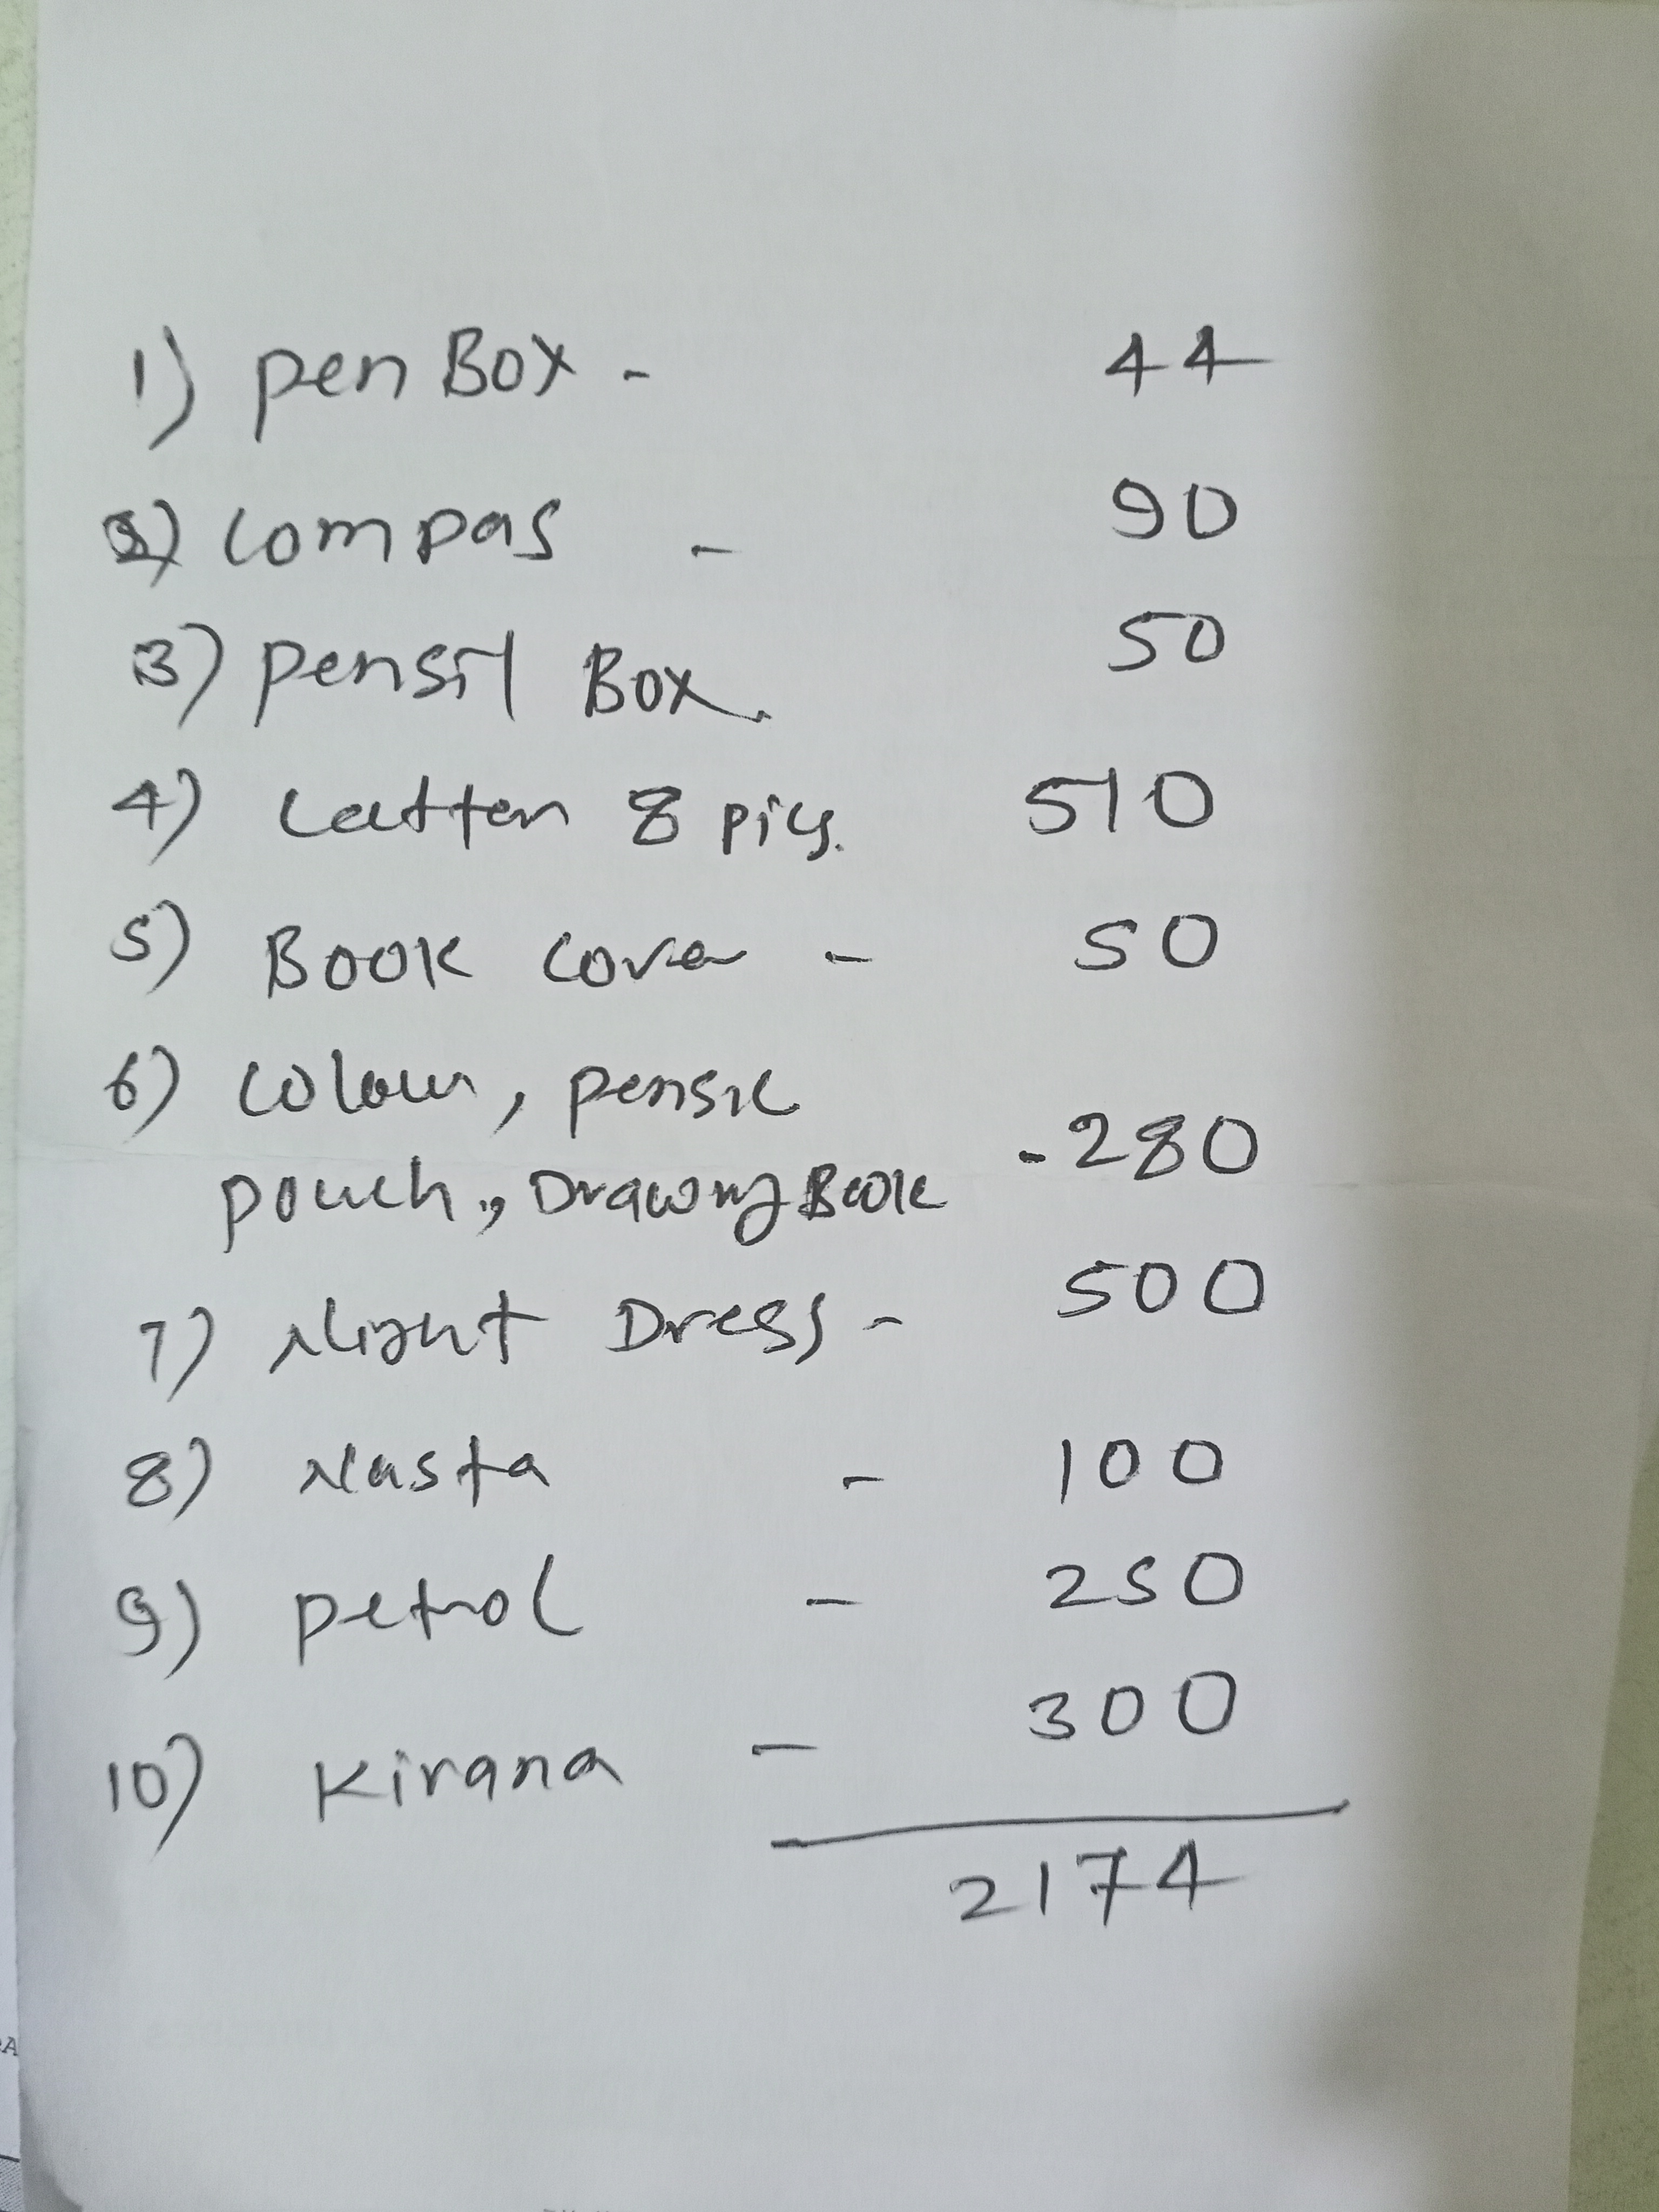 1) pen Box - 44
2) compas - 90
3) pensil Box. 50
4) 8 pics. 510
5) Book cover - 50
6) colour, pensil
pouch, Drawing Book - 280
7) Night Dress - 500
8) Nasta - 100
9) petrol - 250
10) Kirana - 300
2174